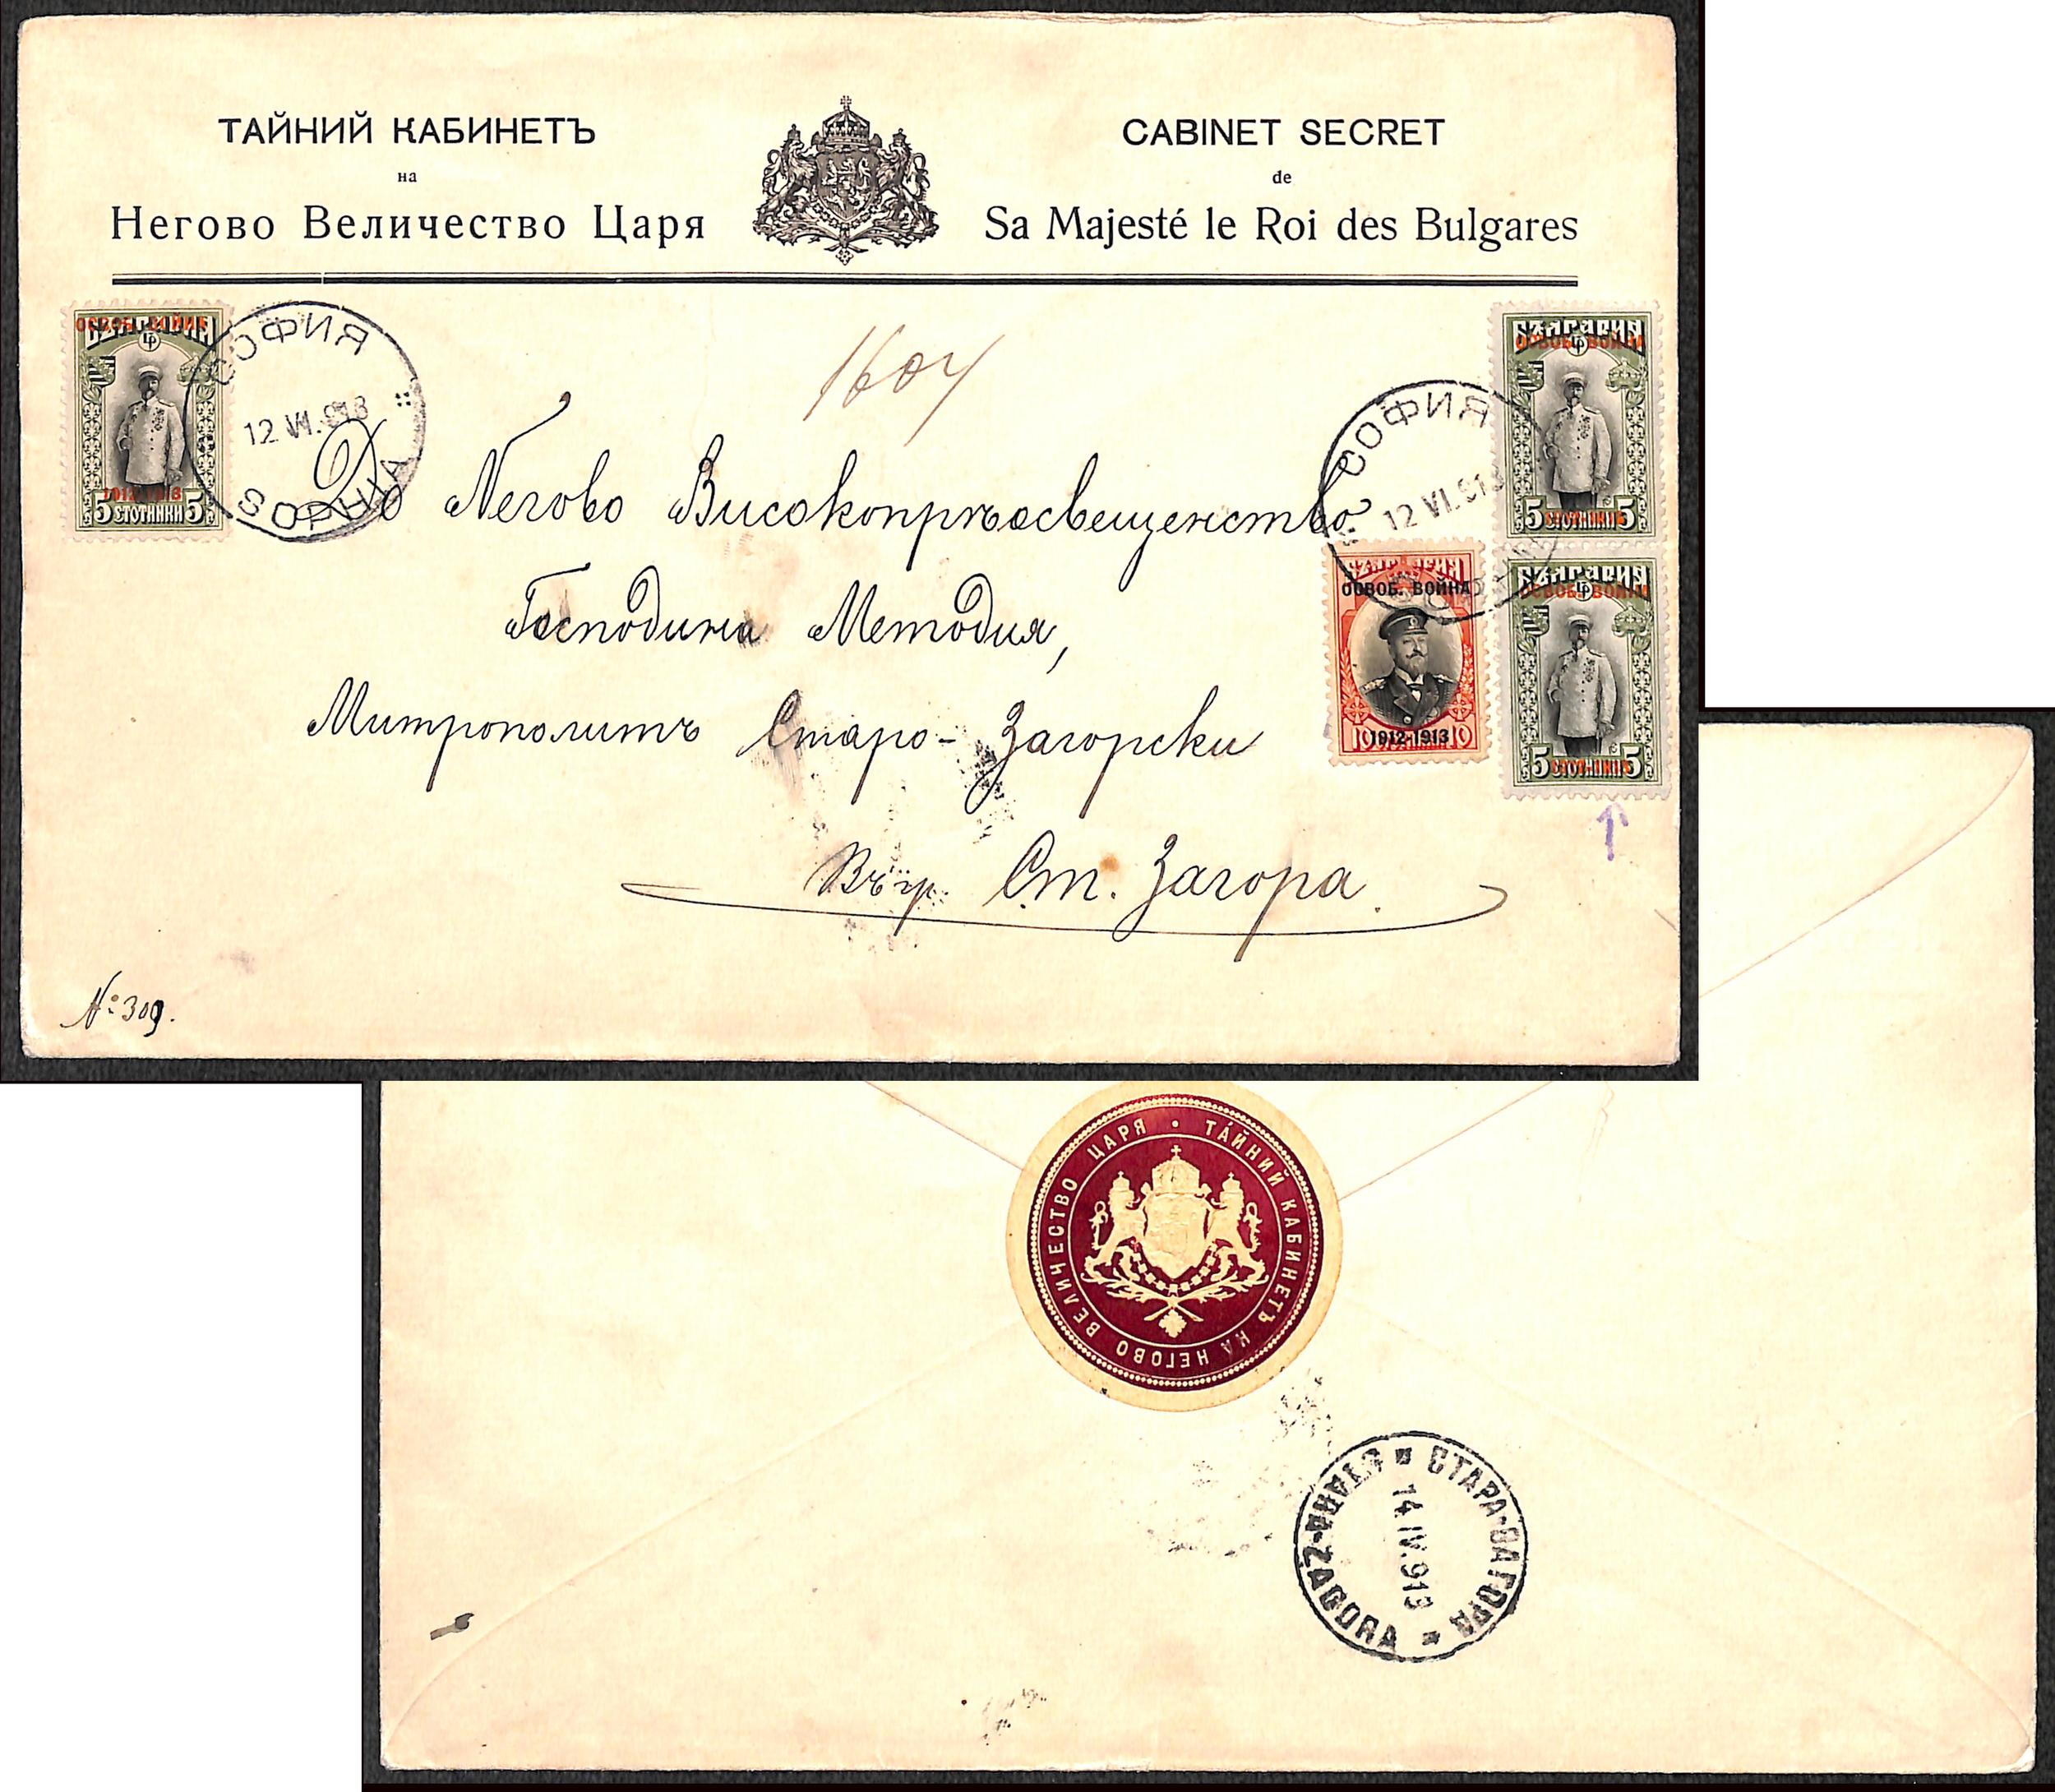 ТАЙНИЙ КАБИНЕТЪ
на
Негово Величество Царя
CABINET SECRET
de
Sa Majesté le Roi des Bulgares
ОСВОБ. ВОЙНА
БЪЛГАРИЯ
1912-1913
5 СТОТИНКИ 5
СОФИЯ
12 VI.913
1604
СОФИЯ
12 VI.913
БЪЛГАРИЯ
ОСВОБ. ВОЙНА
5 СТОТИНКИ 5
БЪЛГАРИЯ
ОСВОБ. ВОЙНА
1912-1913
10 10
БЪЛГАРИЯ
ОСВОБ. ВОЙНА
5 СТОТИНКИ 5
До Негово Високопрѣосвещенство
Господина Методия,
Митрополитъ Старо-Загорски
Въ гр. Ст. Загора.
№ 309.
ТАЙНИЙ КАБИНЕТЪ НА НЕГОВО ВЕЛИЧЕСТВО ЦАРЯ
СТАРА-ЗАГОРА
14.IV.913
STARA-ZAGORA